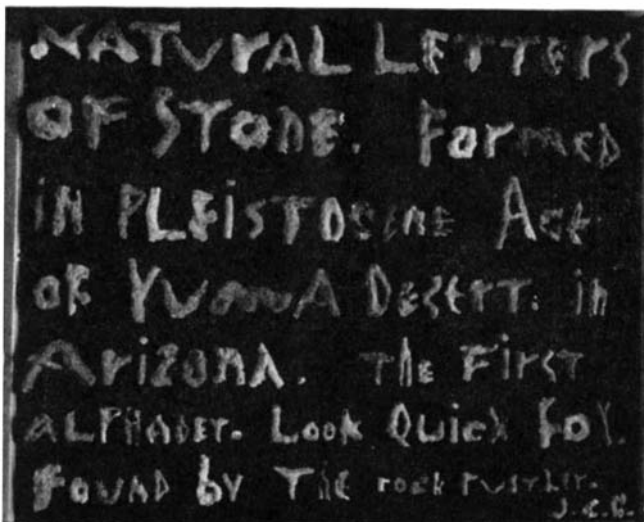 NATUrAL LETTErS
OF STONE. FOrMED
iN PLEiSTOCENE AGE
OF YUMA DESErT. in
ArizonA. THE First
ALPHABET. Look Quick Fox.
FOUND by THE rock rustler.
J.C.G.